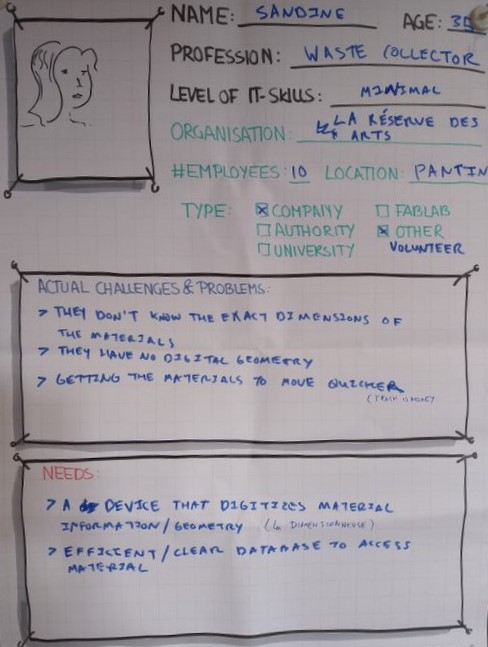 NAME: SANDINE AGE: 35
PROFESSION: WASTE COLLECTOR
LEVEL OF IT-SKILLS: MINIMAL
ORGANISATION: LA RÉSERVE DES
ARTS
#EMPLOYEES: 10 LOCATION: PANTIN
TYPE: ☒ COMPANY ☐ FABLAB
☐ AUTHORITY ☒ OTHER
☐ UNIVERSITY VOLUNTEER
ACTUAL CHALLENGES & PROBLEMS:
> THEY DON'T KNOW THE EXACT DIMENSIONS OF
THE MATERIALS
> THEY HAVE NO DIGITAL GEOMETRY
> GETTING THE MATERIALS TO MOVE QUICKER
IS MONEY
NEEDS:
> A DEVICE THAT DIGITIZES MATERIAL
INFORMATION/GEOMETRY
> EFFICIENT/CLEAR DATABASE TO ACCESS
MATERIAL